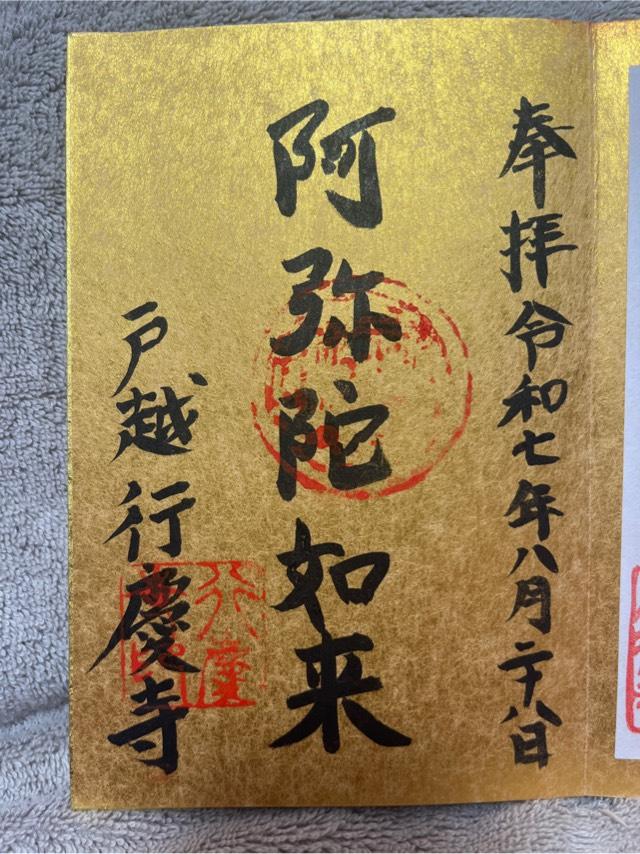 奉拝令和七年八月二十八日
阿弥陀如来
戸越行慶寺